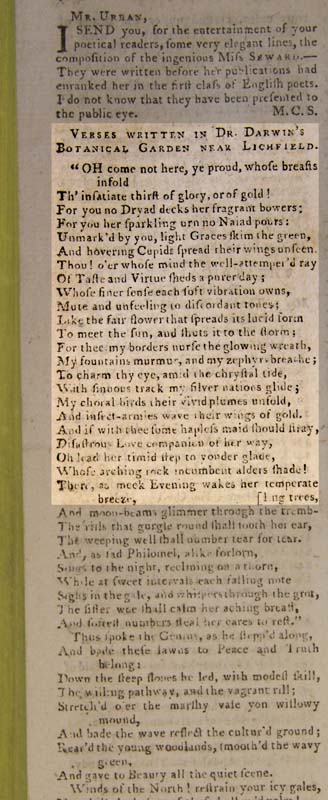 MR. URBAN,
I SEND you, for the entertainment of your
poetical readers, ſome very elegant lines, the
compoſition of the ingenious Miſs SEWARD.—
They were written before her publications had
enranked her in the firſt claſs of Engliſh poets.
I do not know that they have been preſented to
the public eye. M. C. S.
VERSES WRITTEN IN DR. DARWIN'S
BOTANICAL GARDEN NEAR LICHFIELD.
"OH come not here, ye proud, whoſe breaſts
infold
Th' inſatiate thirſt of glory, or of gold!
For you no Dryad decks her fragrant bowers;
For you her ſparkling urn no Naiad pours:
Unmark'd by you, light Graces ſkim the green,
And hovering Cupids ſpread their wings unſeen.
Thou! o'er whoſe mind the well-attemper'd ray
Of Taſte and Virtue ſheds a purer day;
Whoſe finer ſenſe each ſoft vibration owns,
Mute and unfeeling to diſcordant tones;
Like the fair flower that ſpreads its lucid form
To meet the ſun, and ſhuts it to the ſtorm;
For thee my borders nurſe the glowing wreath,
My fountains murmur, and my zephyrs breathe;
To charm thy eye, amid the chryſtal tide,
With ſinuous track my ſilver nations glide;
My choral birds their vivid plumes unfold,
And inſect-armies wave their wings of gold.
And if with thee ſome hapleſs maid ſhould ſtray,
Diſaſtrous Love companion of her way,
Oh lead her timid ſtep to yonder glade,
Whoſe arching rock incumbent alders ſhade!
There, as meek Evening wakes her temperate
breeze, [ling trees,
And moon-beams glimmer through the tremb-
The rills that gurgle round ſhall ſooth her ear,
The weeping well ſhall number tear for tear.
And, as ſad Philomel, alike forlorn,
Sings to the night, reclining on a thorn,
While at ſweet intervals each falling note
Sighs in the gale, and whiſpers through the grot,
The ſiſter woe ſhall calm her aching breaſt,
And ſofteſt numbers ſteal her cares to reſt."
Thus ſpoke the Genius, as he ſtepp'd along,
And bade theſe lawns to Peace and Truth
belong:
Down the ſteep ſlopes he led, with modeſt ſkill,
The willing pathway, and the vagrant rill;
Stretch'd o'er the marſhy vale yon willowy
mound,
And bade the wave reflect the cultur'd ground;
Rear'd the young woodlands, ſmooth'd the wavy
green,
And gave to Beauty all the quiet ſcene.
Winds of the North! reſtrain your icy gales,